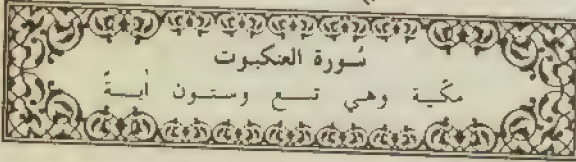 سُورة العنكبوت
مكّية وهي تسع وستون أيسةً